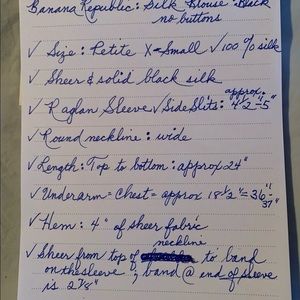 Banana Republic: Silk Blouse: Black
no buttons
✓ Size: Petite X-Small ✓ 100% silk
✓ Sheer & solid black silk
approx.
✓ Raglan Sleeve ✓ Side Slits: 4 1/2"-5"
✓ Round neckline: wide
✓ Length: Top to bottom: approx 24"
✓ Underarm = Chest = approx 18 1/2" = 36"-37"
✓ Hem: 4" of sheer fabric
neckline
✓ Sheer from top of to band
on the sleeve; band @ end of sleeve
is 2 7/8"